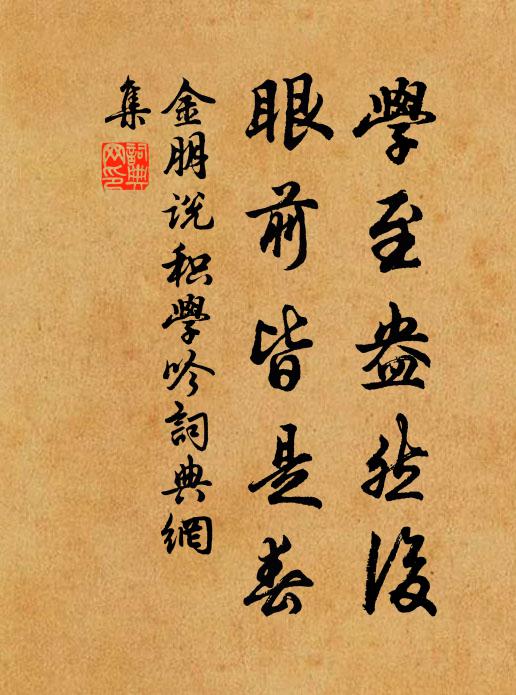 學至盎然後
眼前皆是春
金朋说积學吟詞典網
集
詞典
网印